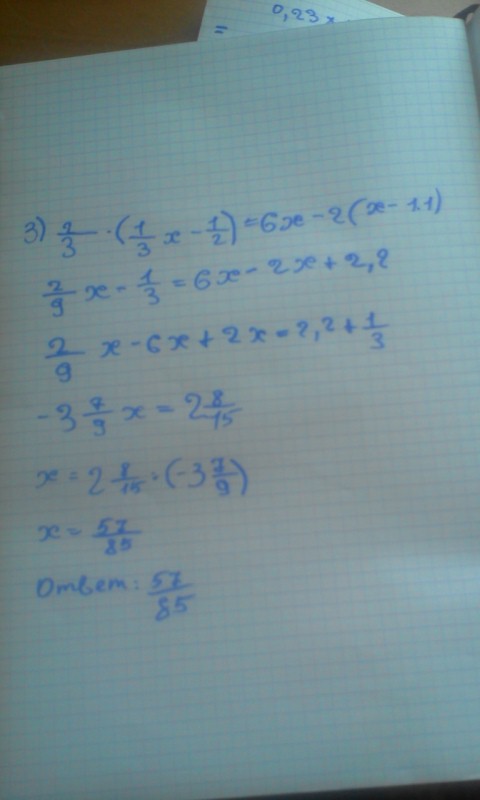 0,23x
=
3) 2/3 · (1/3 x - 1/2) = 6x - 2(x - 1.1)
2/9 x - 1/3 = 6x - 2x + 2,2
2/9 x - 6x + 2x = 2,2 + 1/3
-3 7/9 x = 2 8/15
x = 2 8/15 : (-3 7/9)
x = 57/85
Ответ: 57/85